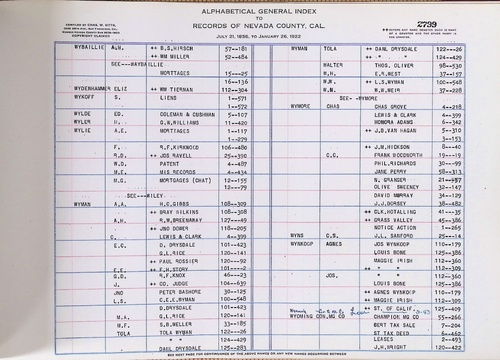 ALPHABETICAL GENERAL INDEX
TO
RECORDS OF NEVADA COUNTY, CAL.
JULY 21, 1856, TO JANUARY 26, 1922
2799
WYBAILLIE A.W. ++ B.S.HIRSON 57--181
++ WM MILLER 52--484
SEE---WAYBAILLIE
MORTTAGES 15---25
16--136
WYDENHAMMER ELIZ ++ WM TIERMAN 112--304
WYKOFF S. LIENS 1--571
1--572
WYLDE ED. COLEMAN & CUSHMAN 5--107
WYLER H. G.W.WILLIAMS 11--420
WYLIE A.E. MORTTAGES 1--117
1--279
F. R.F.KIRKWOOD 106--480
R.D. ++ JOS RAVELL 25--390
W.D. PATENT 4--487
M.E. MIS RECORDS 4--434
M.G. MORTTAGES (CHAT) 12--155
12---79
SEE---WILEY
WYMAN A.A. H.C.GIBBS 108--309
++ BRAY WILKINS 108--308
A.H. R.W.BREENAWAY 127--49
++ JNO DOWER 118--205
C. LEWIS & CLARK 4--399
E.C. D. DRYSDALE 101--423
G.L.RICE 120--141
++ PAUL ROSSIER 120--92
E.E. ++ F.H.STORY 101----2
G.D. R.F.KNOX 46--23
J. ++ CO. JUDGE 104--639
JNO PETER BASHORE 30--125
L.S. C.E.E.WYMAN 100--548
D.DRYSDALE 101--423
M.A. G.L.RICE 120--141
M.F. S.B.WELLER 33--185
TOLA TOLA WYMAN 122--26
++ " " 124--429
DANL DRYSDALE 125--283
WYMAN TOLA ++ DANL DRYSDALE 122---26
++ " " 124--429
WALTER THOS. OLIVER 98--530
W.H. E.R.WEST 37--157
W.N. ++ L.S.WYMAN 100--548
W.W. W.M.WEIR 37--228
SEE---WYMORE
WYMORE CHAS CHAS GROVE 4--218
LEWIS & CLARK 4--399
HONORA ADAMS 6--342
++ J.B.VAN HAGAN 5--310
3--153
++ J.M.HICKSON 8--40
C.C. FRANK BODSWORTH 19---19
PHIL.RICHARDS 30--99
JANE PERRY 58--313
N. GRANGER 21--457
OLIVE SWEENEY 32--147
DAVID MURRAY 34--129
J.J.DORSEY 38--482
++ CLK.HOTALLING 41---35
++ GRASS VALLEY 45--386
NOTICE ACTION 1--265
WYNG CHS. J.L.SANFORD 25---14
WYNKOOP AGNES JOS WYNKOOP 110--179
LOUIS BONE 125--386
MAGGIE IRISH 112--360
++ " " 112--309
JOS. " " 112--360
LOUIS BONE 125--386
++ AGNES WYNKOOP 110--179
++ MAGGIE IRISH 112--309
++ ST. OF CALIF. 125--409
WYOMING CON.MG CO CHAMPION MG CO 55--266
BERT TAX SALE 7--204
ST TAX DEED 6--462
LEASES 2--493
J.H.WRIGHT 120--422
SEE NEXT PAGE FOR CONTINUANCE OF THE ABOVE OR ANY NAMES OCCURRING BETWEEN